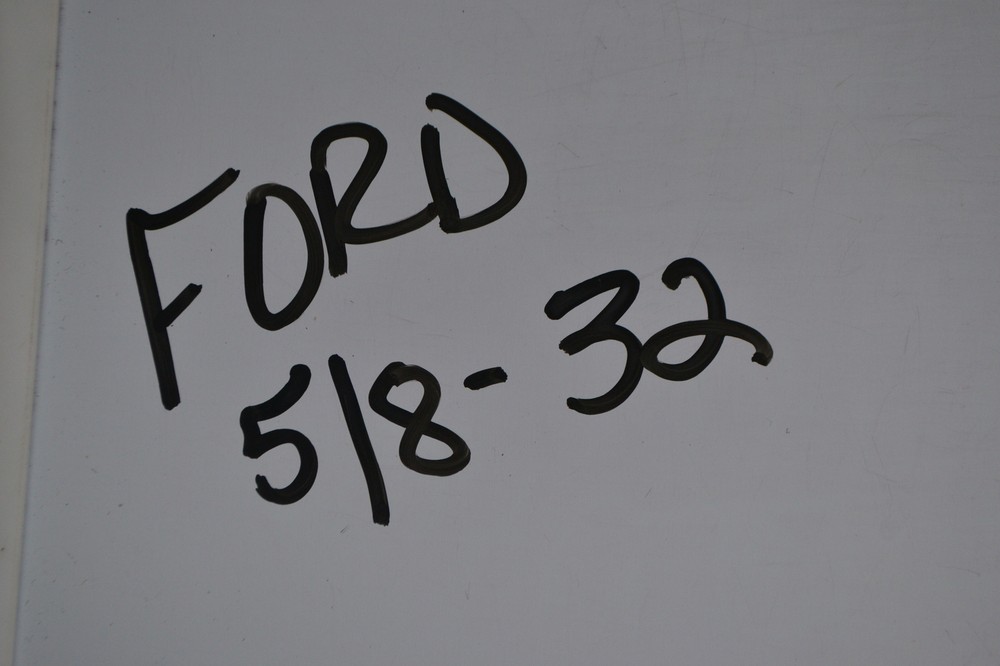 FORD
5/8-32